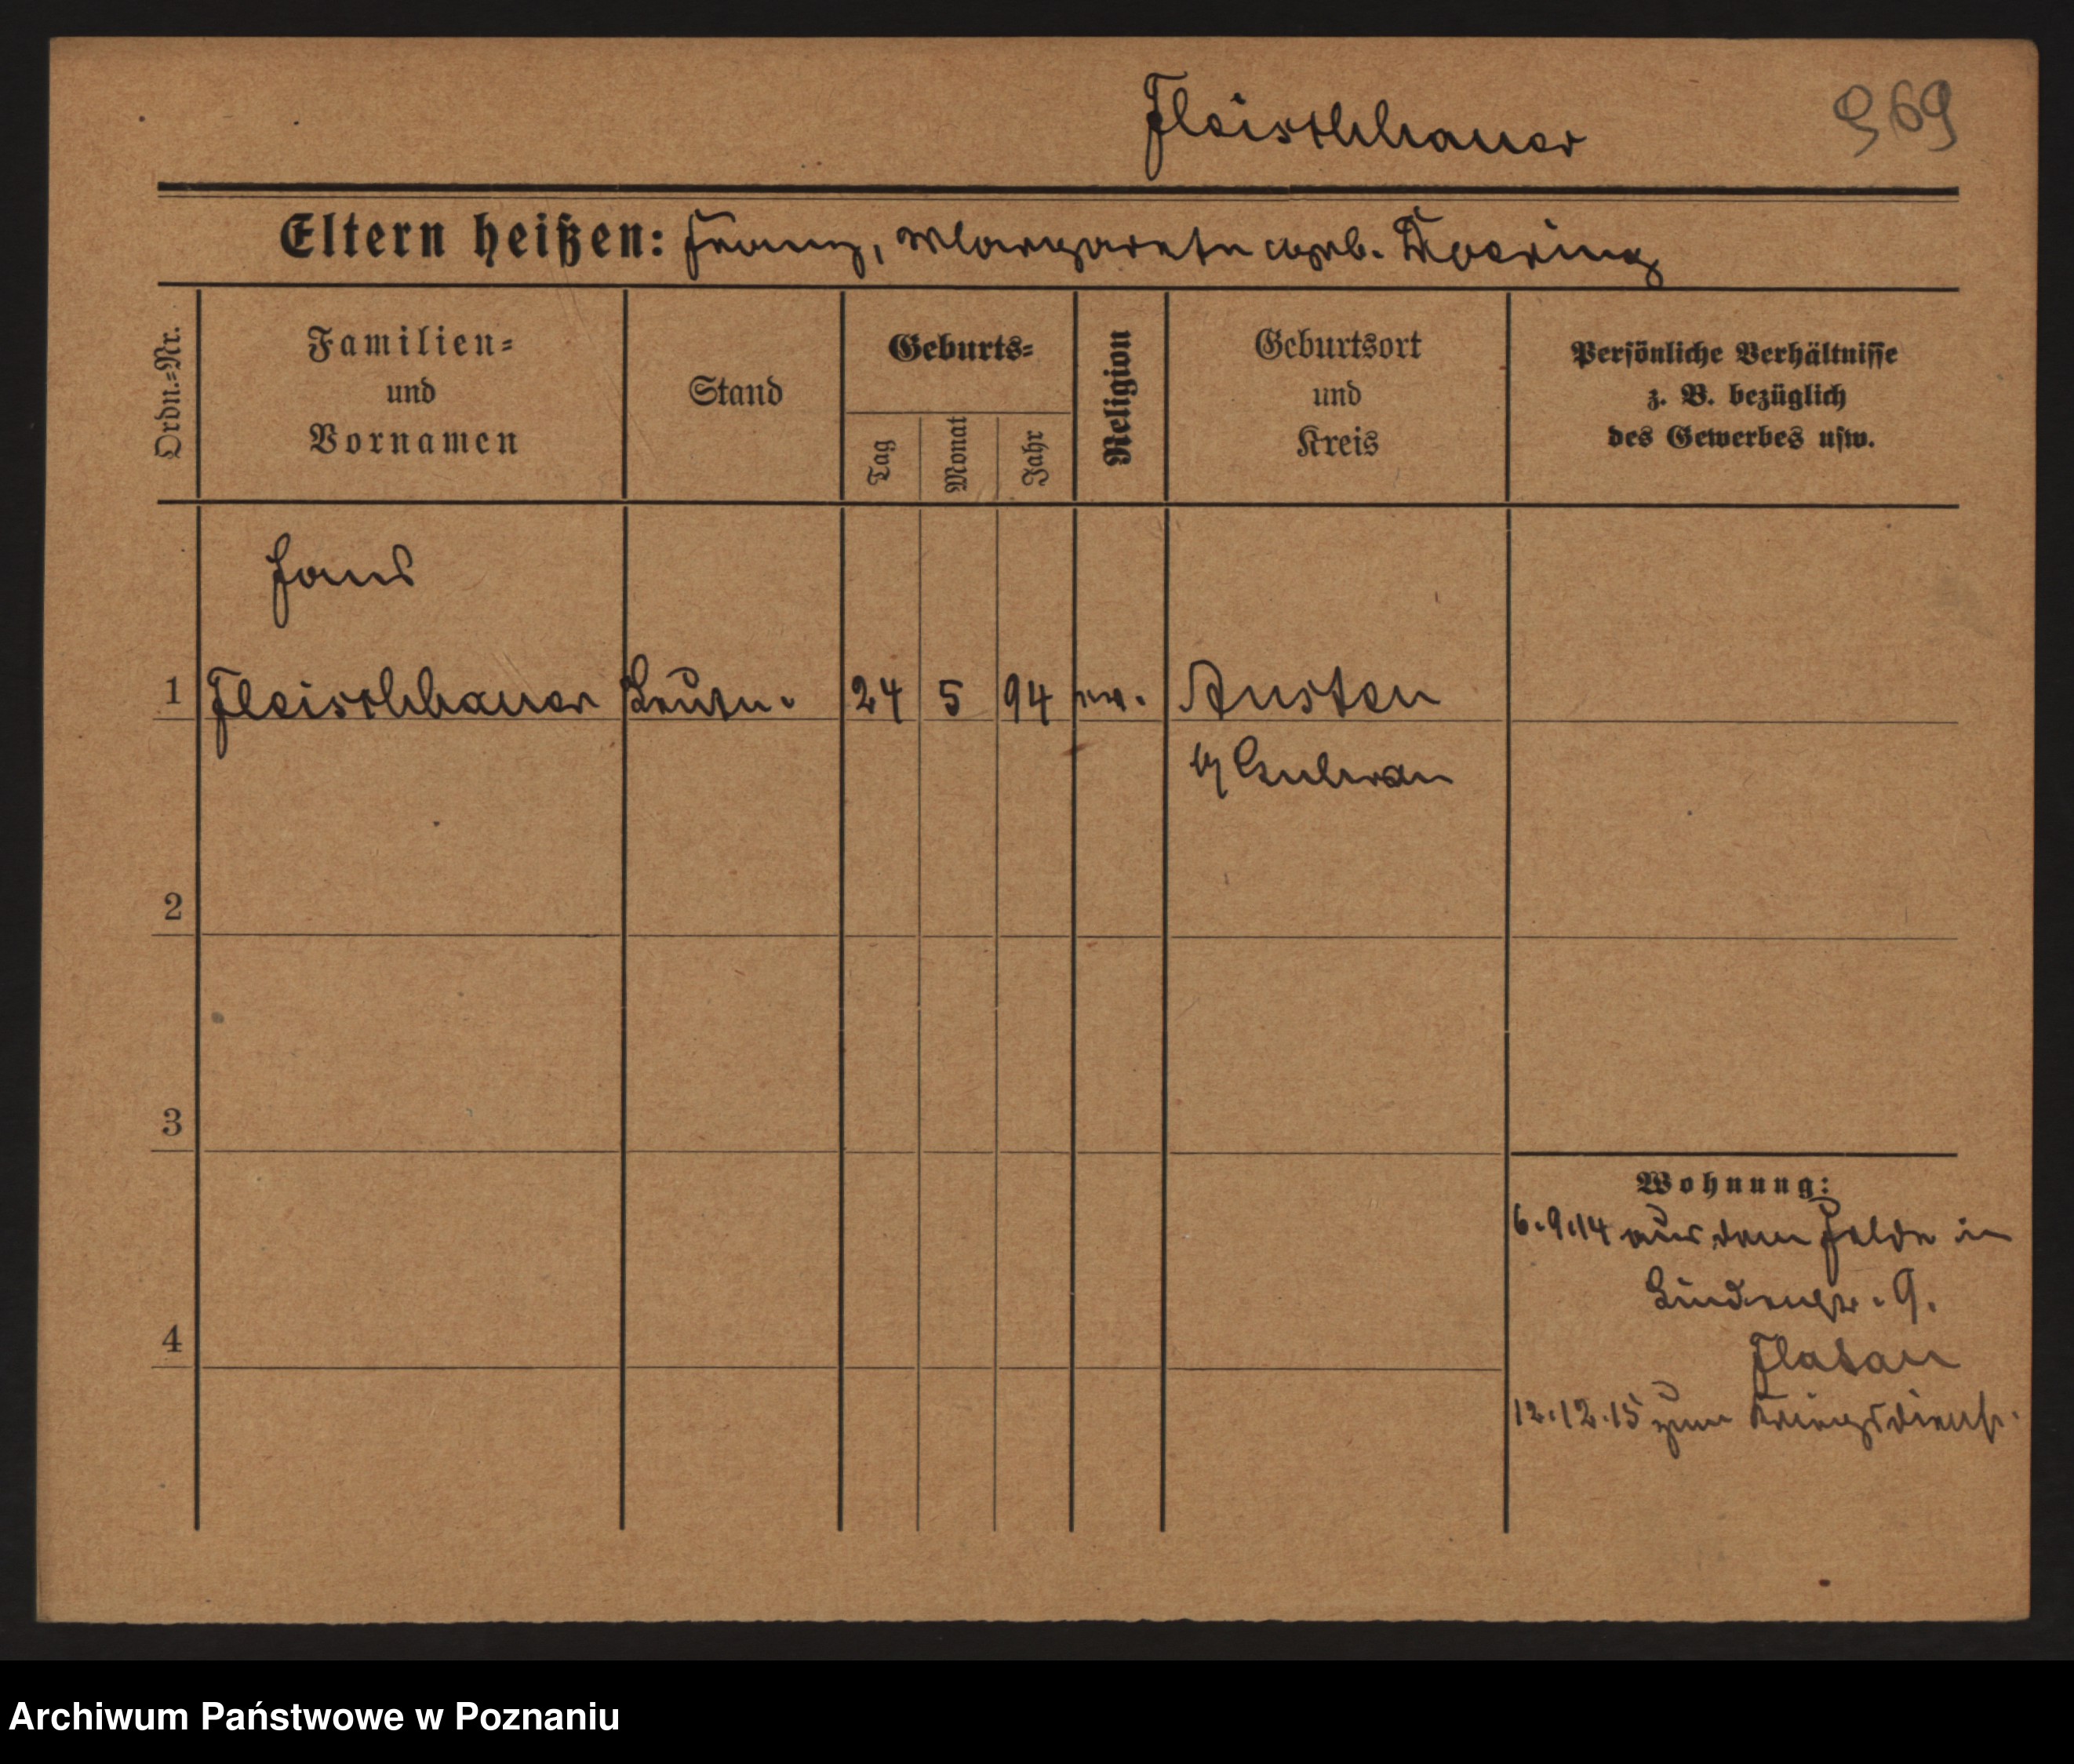 Fleischhauer
969
Eltern heißen: Franz, Margarete geb. Doering
Ordn.=Nr.
Familien=
und
Vornamen
Stand
Geburts=
Tag
Monat
Jahr
Religion
Geburtsort
und
Kreis
Persönliche Verhältnisse
z. B. bezüglich
des Gewerbes usw.
Hans
1 Fleischhauer Leutn. 24 5 94 ev. Austen
2
3
4
Wohnung:
6.9.14 aus dem Felde in
Lindenstr. 9.
12.12.15 zum Kriegsdienst.
Archiwum Państwowe w Poznaniu